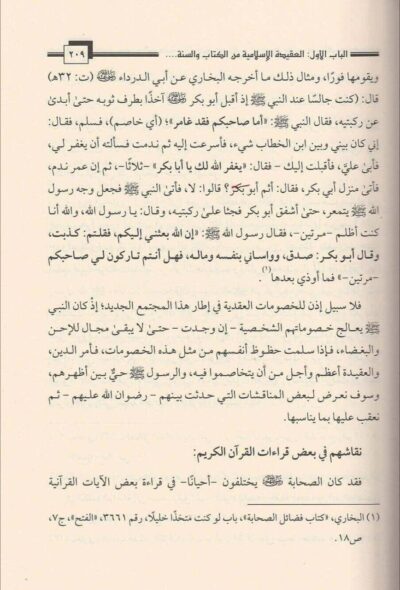 الباب الأول: العقيدة الإسلامية من الكتاب والسنة.... ٢٠٩
ويقومها فورًا، ومثال ذلك ما أخرجه البخاري عن أبي الدرداء ﵁ (ت: ٣٢هـ)
قال: (كنت جالسًا عند النبي ﷺ إذ أقبل أبو بكر ﵁ آخذًا بطرف ثوبه حتى أبدى
عن ركبتيه، فقال النبي ﷺ: «أما صاحبكم فقد غامر»؛ (أي خاصم)، فسلم، فقال:
إني كان بيني وبين ابن الخطاب شيء، فأسرعت إليه ثم ندمت فسألته أن يغفر لي،
فأبى عليَّ، فأقبلت إليك – فقال: «يغفر الله لك يا أبا بكر» –ثلاثًا–، ثم إن عمر ندم،
فأتى منزل أبي بكر، فقال: أثم أبو بكر؟ قالوا: لا، فأتى النبي ﷺ فجعل وجه رسول
الله ﷺ يتمعر، حتى أشفق أبو بكر فجثا على ركبتيه، وقال: يا رسول الله، والله أنا
كنت أظلم –مرتين–، فقال رسول الله ﷺ: «إن الله بعثني إليكم، فقلتم: كذبت،
وقال أبو بكر: صدق، وواساني بنفسه وماله، فهل أنتم تاركون لي صاحبكم
–مرتين–» فما أوذي بعدها(١).
فلا سبيل إذن للخصومات العقدية في إطار هذا المجتمع الجديد؛ إذ كان النبي
ﷺ يعالج خصوماتهم الشخصية – إن وجدت – حتى لا يبقى مجال للإحن
والبغضاء، فإذا سلمت حظوظ أنفسهم من مثل هذه الخصومات، فأمر الدين،
والعقيدة أعظم وأجل من أن يتخاصموا فيه، والرسول ﷺ حيٌّ بين أظهرهم،
وسوف نعرض لبعض المناقشات التي حدثت بينهم – رضوان الله عليهم – ثم
نعقب عليها بما يناسبها.
نقاشهم في بعض قراءات القرآن الكريم:
فقد كان الصحابة ﵃ يختلفون –أحيانًا– في قراءة بعض الآيات القرآنية
(١) البخاري، «كتاب فضائل الصحابة»، باب لو كنت متخذًا خليلًا، رقم ٣٦٦١، «الفتح»، ج٧،
ص١٨.